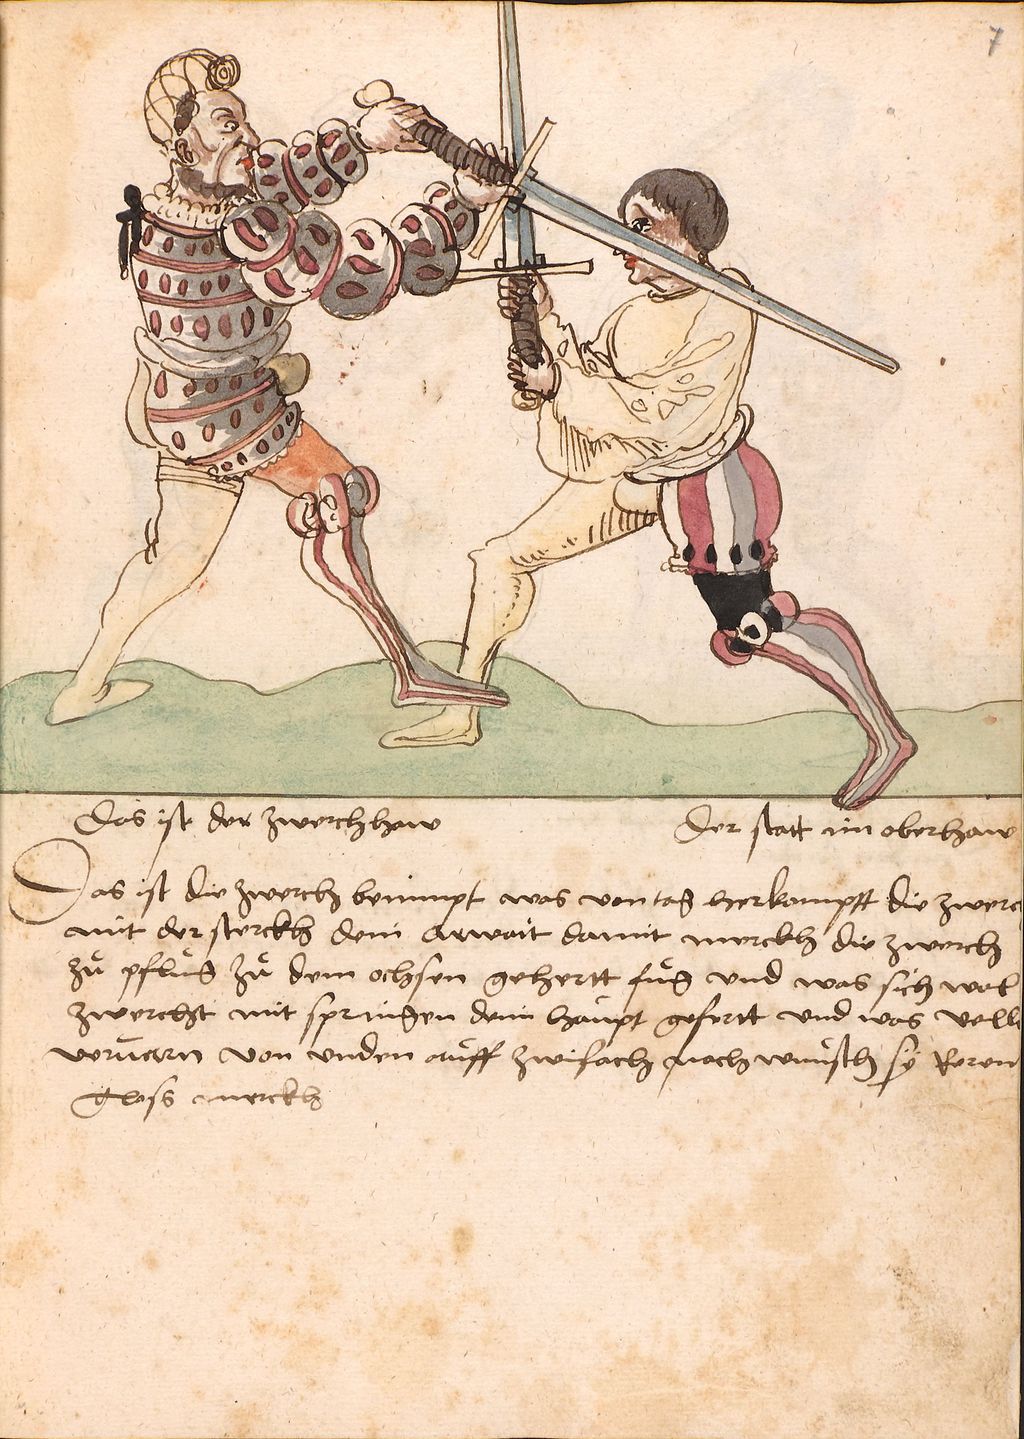 7
Das ist der zwerchhaw
Der statt im oberhaw
Das ist die zwerch benimpt was von tag herkompt die zwerc
mit der sterckh dein arwait damit merckh die zwerch
zů pflůg zů dem ochsen gehertt fůg und was sich wol
zwercht mit springen dem haupt gefertt und was vell
von unden auff zwifach noch wunsch sÿ
gloss merckh